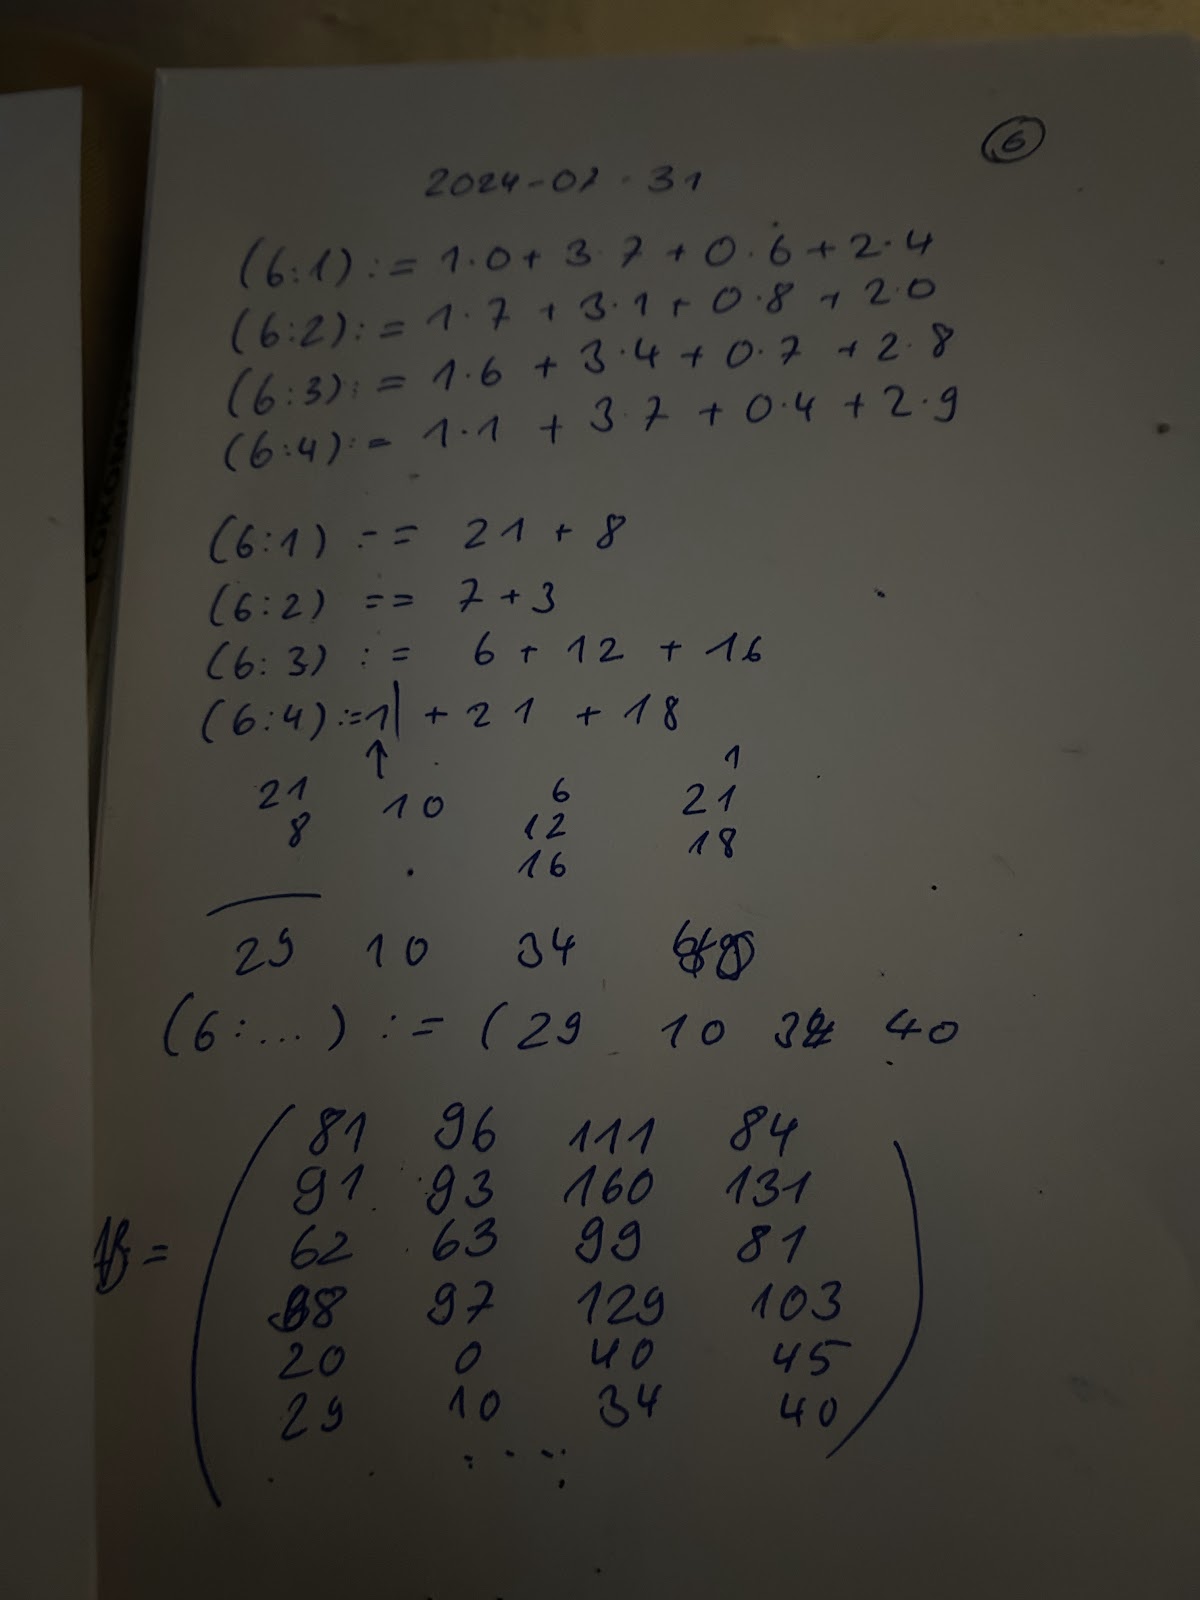 6
2024-07-31
(6:1) := 1·0 + 3·7 + 0·6 + 2·4
(6:2) := 1·7 + 3·1 + 0·8 + 2·0
(6:3) := 1·6 + 3·4 + 0·7 + 2·8
(6:4) := 1·1 + 3·7 + 0·4 + 2·9
(6:1) := 21 + 8
(6:2) == 7+3
(6:3) := 6 + 12 + 16
(6:4) := 1| + 21 + 18
↑ 1
21 10 6 21
8 12 18
16
29 10 34
(6:...) := (29 10 34 40
81 96 111 84
91 93 160 131
AB = 62 63 99 81
88 97 129 103
20 0 40 45
29 10 34 40